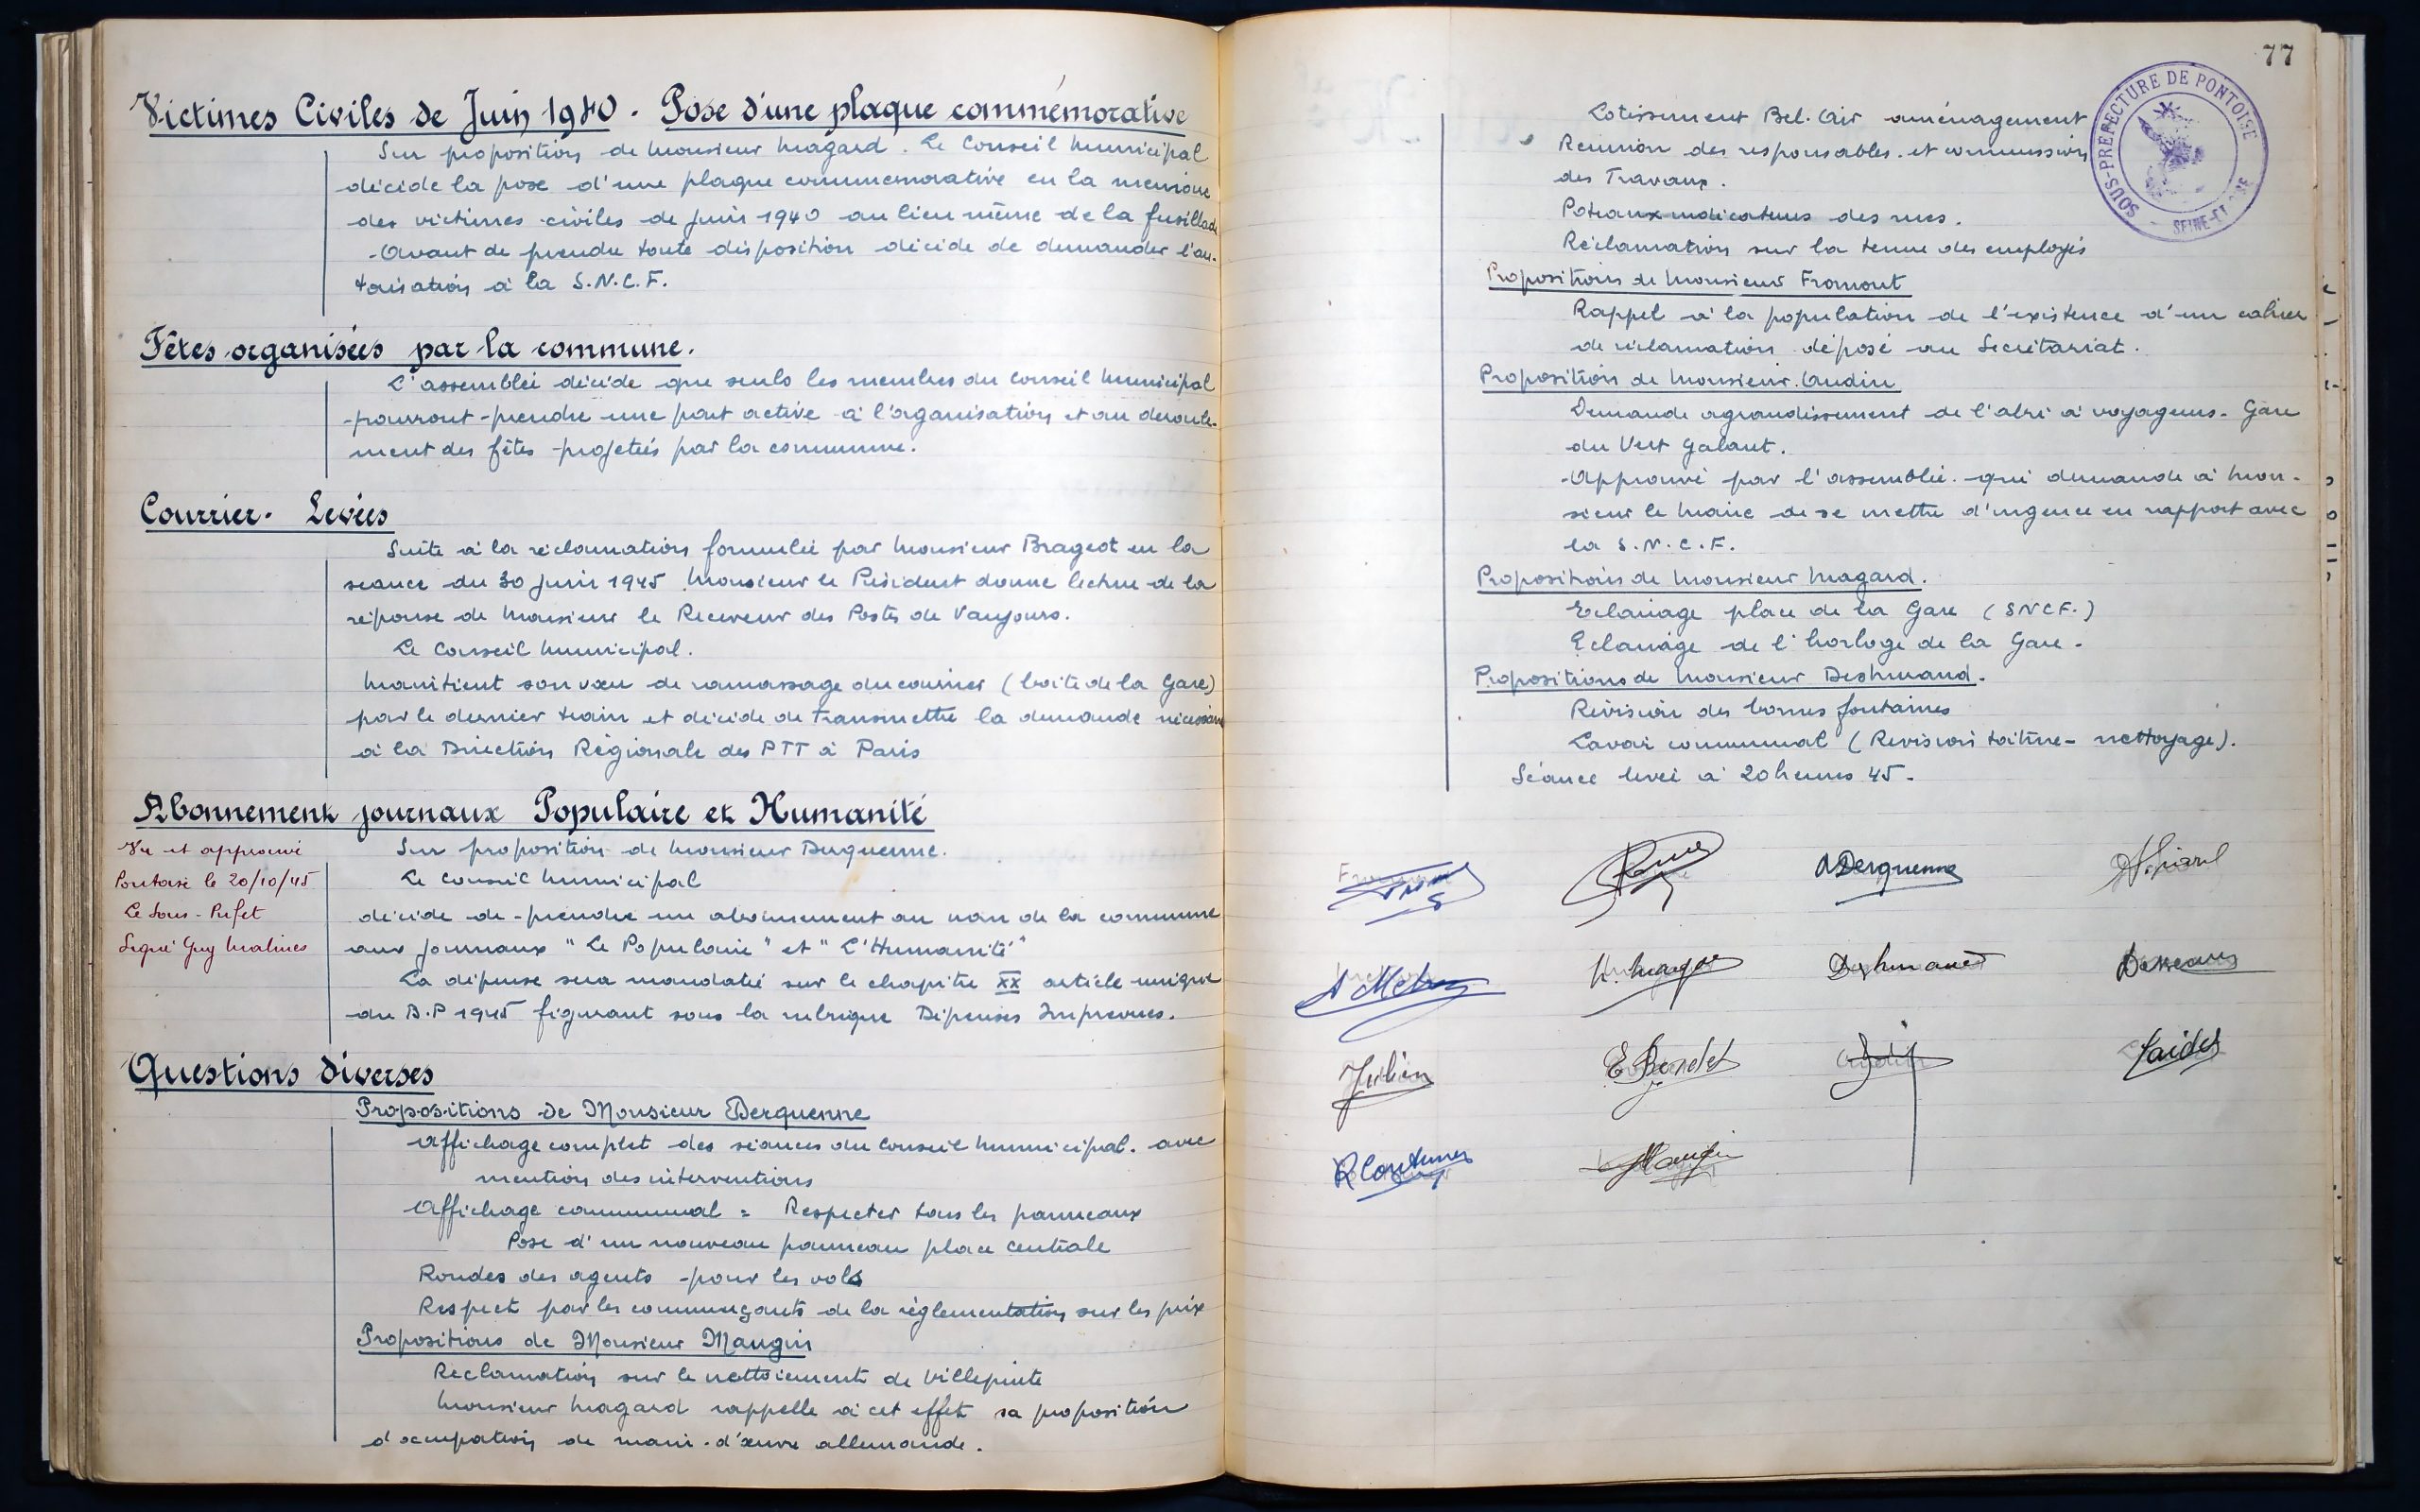 Victimes Civiles de Juin 1940. Pose d'une plaque commémorative
Sur proposition de Monsieur Magard. Le Conseil Municipal
décide la pose d'une plaque commemorative en la memoire
des victimes civiles de Juin 1940 au lieu même de la fusillade
Avant de prendre toute disposition décide de demander l'au-
torisation à la S.N.C.F.
Fêtes organisées par la commune.
L'assemblée décide que seuls les membres du Conseil Municipal
pourront prendre une part active à l'organisation et au déroule-
ment des fêtes projetées par la commune.
Courrier. Levées
Suite à la réclamation formulée par Monsieur Brageot en la
séance du 30 Juin 1945 Monsieur le Président donne lecture de la
réponse de Monsieur le Receveur des Postes de Vaujours.
Le Conseil Municipal.
Maintient son vœu de ramassage du courrier (boîte de la Gare)
par le dernier train et décide de transmettre la demande nécessaire
à la Direction Régionale des PTT à Paris
Abonnement journaux Populaire et Humanité
Vu et approuvé
Pontoise le 20/10/45
Le Sous-Préfet
Signé Guy Malines
Sur proposition de Monsieur Derquenne.
Le Conseil Municipal
décide de prendre un abonnement au nom de la commune
aux journaux "Le Populaire" et "L'Humanité"
La dépense sera mandatée sur le chapitre XX article unique
du B.P 1945 figurant sous la rubrique Dépenses Imprévues.
Questions diverses
Propositions de Monsieur Derquenne
Affichage complet des séances du Conseil Municipal. avec
mention des interventions
Affichage communal = Respecter tous les panneaux
Pose d'un nouveau panneau place centrale
Rondes des agents pour les vols
Respect par les commerçants de la réglementation sur les prix
Propositions de Monsieur Mangin
Reclamation sur le nettoiement de Villepinte
Monsieur Magard rappelle à cet effet sa proposition
d'occupation de main-d'œuvre allemande.
77
SOUS-PRÉFECTURE DE PONTOISE
SEINE-ET-OISE
Lotissement Bel-Air aménagement
Reunion des responsables et commission
des Travaux.
Poteaux indicateurs des rues.
Réclamation sur la tenue des employés
Propositions de Monsieur Fromont
Rappel à la population de l'existence d'un cahier
de réclamation déposé au Secrétariat.
Proposition de Monsieur Audin
Demande agrandissement de l'abri à voyageurs - Gare
du Vert Galant.
Approuvé par l'assemblée qui demande à Mon-
sieur le Maire de se mettre d'urgence en rapport avec
la S.N.C.F.
Propositions de Monsieur Magard.
Eclairage place de la Gare (SNCF.)
Eclairage de l'horloge de la Gare.
Propositions de Monsieur Deshmand.
Révision des bornes fontaines
Lavoir communal (Revision toiture - nettoyage).
Séance levée à 20 heures 45.
Derquenne
Julien
E Bendel
Mangin